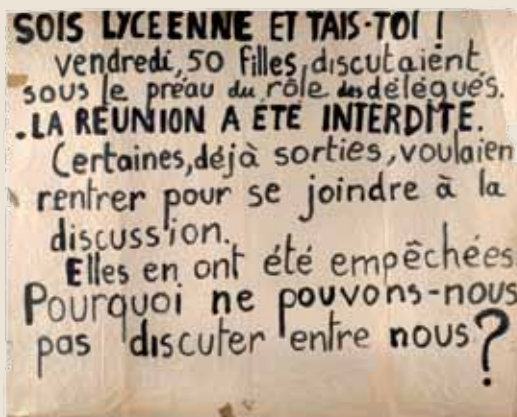 SOIS LYCEENNE ET TAIS-TOI !
Vendredi, 50 filles, discutaient
sous le préau du rôle des délégués.
. LA REUNION A ETE INTERDITE.
Certaines, déjà sorties, voulaien
rentrer pour se joindre à la
discussion.
Elles en ont été empêchées
Pourquoi ne pouvons-nous
pas discuter entre nous ?